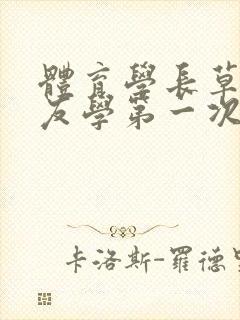 體育學長草
友學第一次
卡洛斯-羅德里